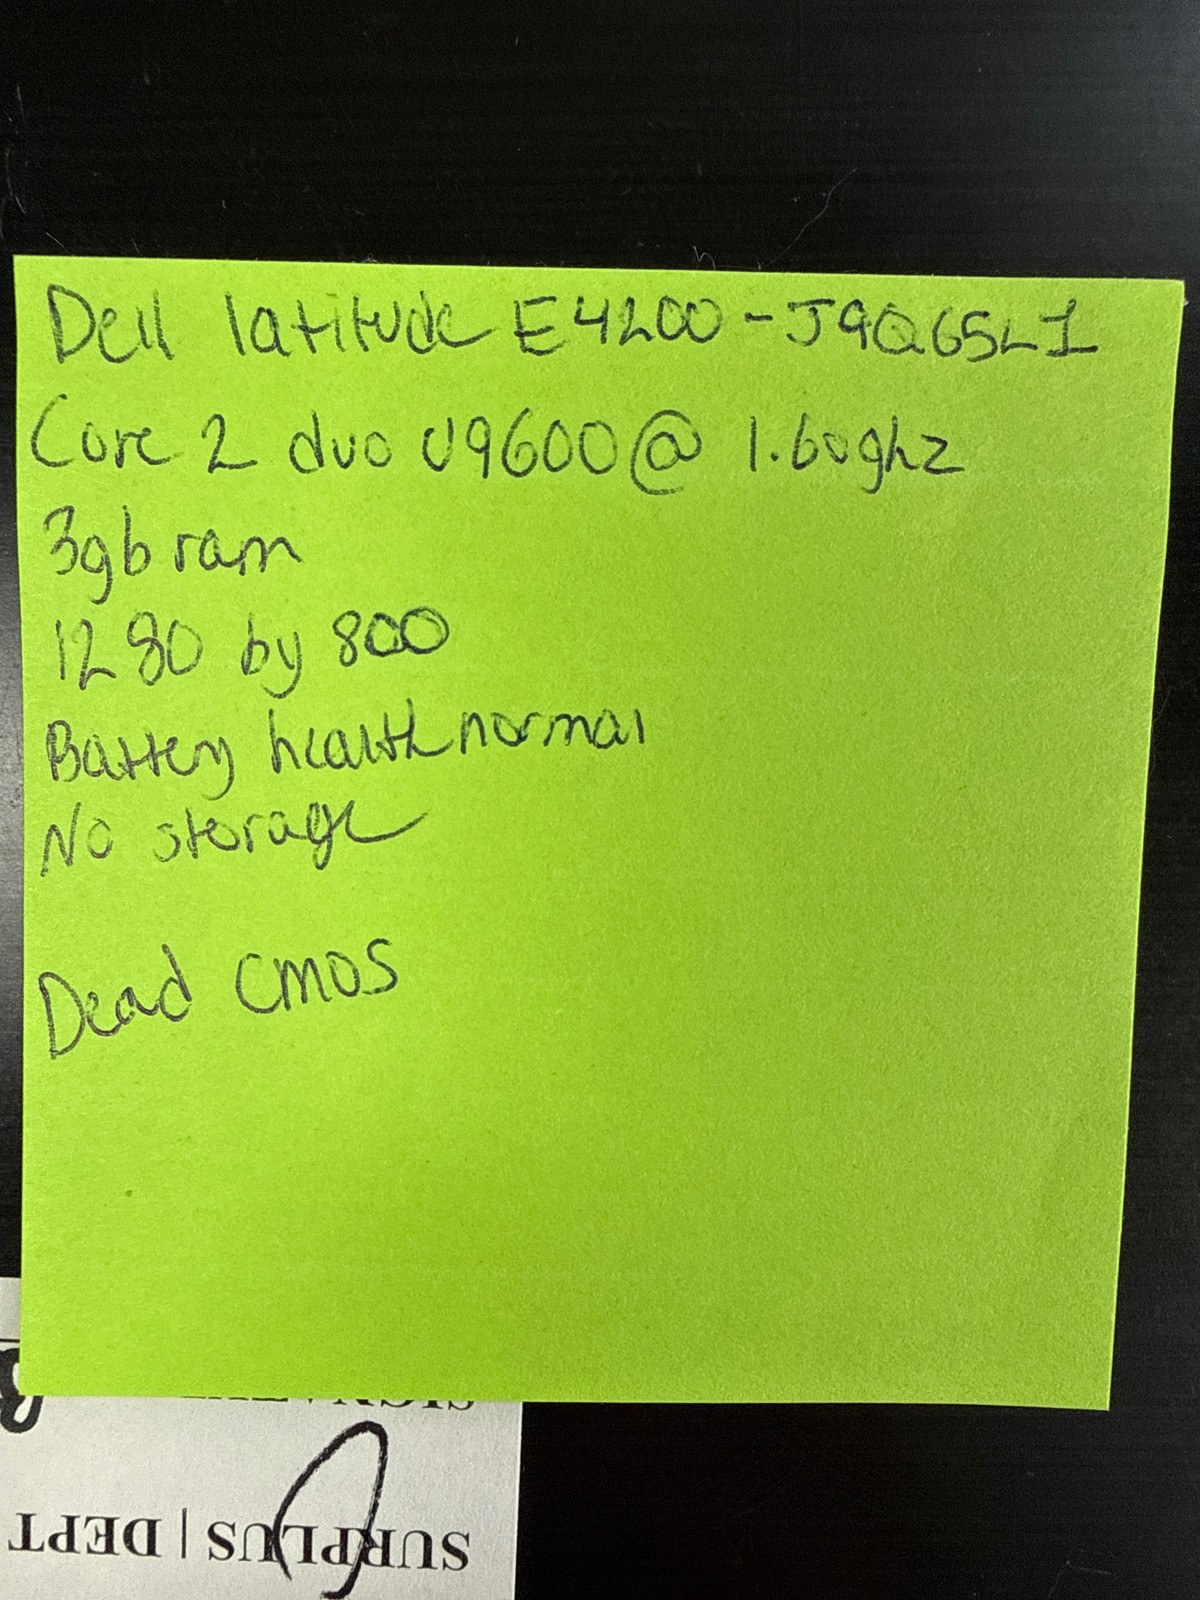 Dell latitude E4200 - J9Q65L1
Core 2 duo U9600 @ 1.60ghz
3gb ram
1280 by 800
Battery health normal
No storage
Dead CMOS
SURPLUS | DEPT